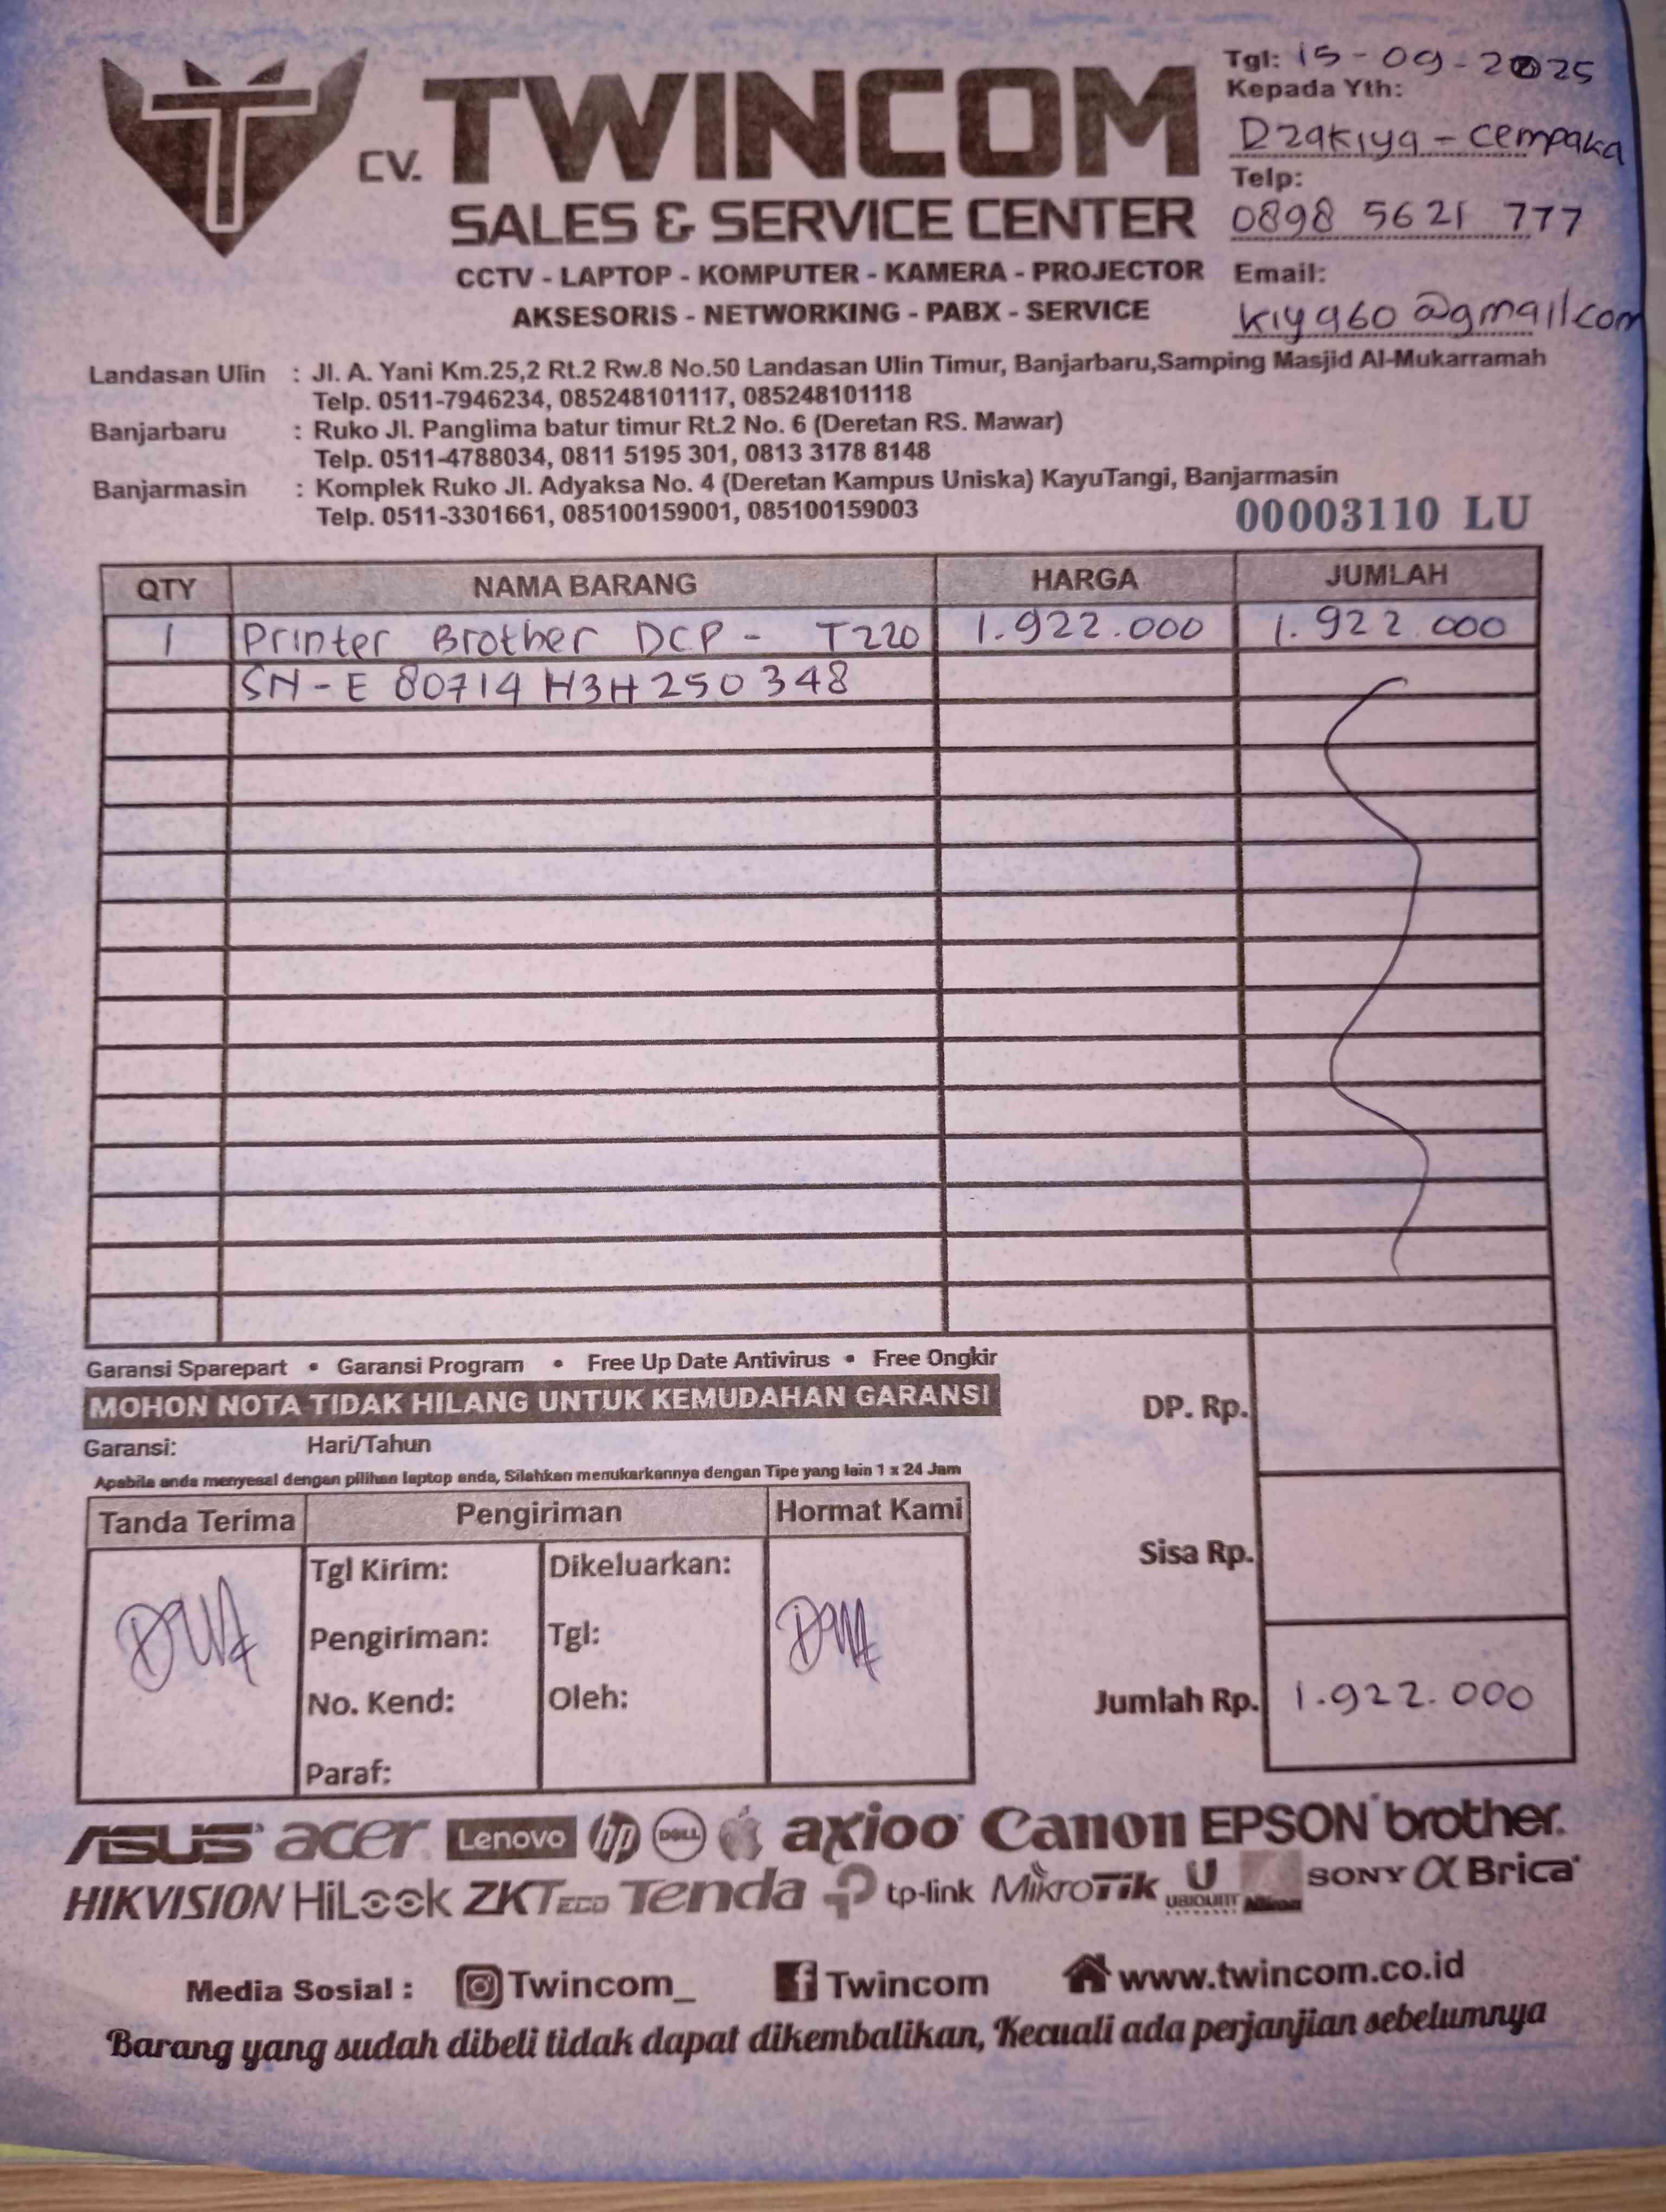 Tgl: 15-09-2025
Kepada Yth:
Dzakiya - cempaka
Telp:
0898 5621 777
Email:
kiya60@gmail.com
CV. TWINCOM
SALES & SERVICE CENTER
CCTV - LAPTOP - KOMPUTER - KAMERA - PROJECTOR
AKSESORIS - NETWORKING - PABX - SERVICE
Landasan Ulin : Jl. A. Yani Km.25,2 Rt.2 Rw.8 No.50 Landasan Ulin Timur, Banjarbaru,Samping Masjid Al-Mukarramah
Telp. 0511-7946234, 085248101117, 085248101118
Banjarbaru : Ruko Jl. Panglima batur timur Rt.2 No. 6 (Deretan RS. Mawar)
Telp. 0511-4788034, 0811 5195 301, 0813 3178 8148
Banjarmasin : Komplek Ruko Jl. Adyaksa No. 4 (Deretan Kampus Uniska) KayuTangi, Banjarmasin
Telp. 0511-3301661, 085100159001, 085100159003
00003110 LU
QTY NAMA BARANG HARGA JUMLAH
1 Printer Brother DCP - T220 1.922.000 1.922.000
SN-E 80714H3H250348
Garansi Sparepart • Garansi Program • Free Up Date Antivirus • Free Ongkir
MOHON NOTA TIDAK HILANG UNTUK KEMUDAHAN GARANSI
Garansi: Hari/Tahun
Apabila anda menyesal dengan pilihan laptop anda, Silahkan menukarkannya dengan Tipe yang lain 1 x 24 Jam
DP. Rp.
Sisa Rp.
Jumlah Rp. 1.922.000
Tanda Terima Pengiriman Hormat Kami
Tgl Kirim: Dikeluarkan:
Pengiriman: Tgl:
No. Kend: Oleh:
Paraf:
ASUS acer Lenovo hp DELL axioo Canon EPSON brother
HIKVISION HiLook ZKTECO Tenda tp-link MikroTik UBIQUITI Nikon SONY α Brica
Media Sosial : Twincom_ Twincom www.twincom.co.id
Barang yang sudah dibeli tidak dapat dikembalikan, Kecuali ada perjanjian sebelumnya